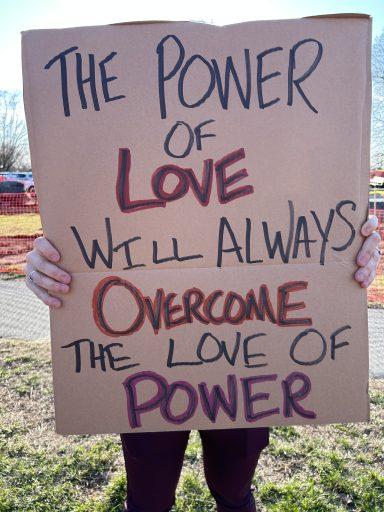 THE POWER
OF
LOVE
WILL ALWAYS
OVERCOME
THE LOVE OF
POWER